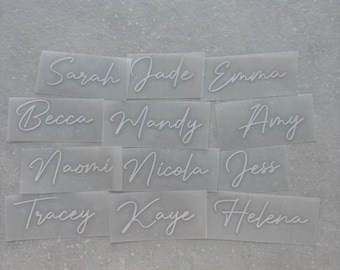 Sarah Jade Emma
Becca Mandy Amy
Naomi Nicola Jess
Tracey Kaye Helena